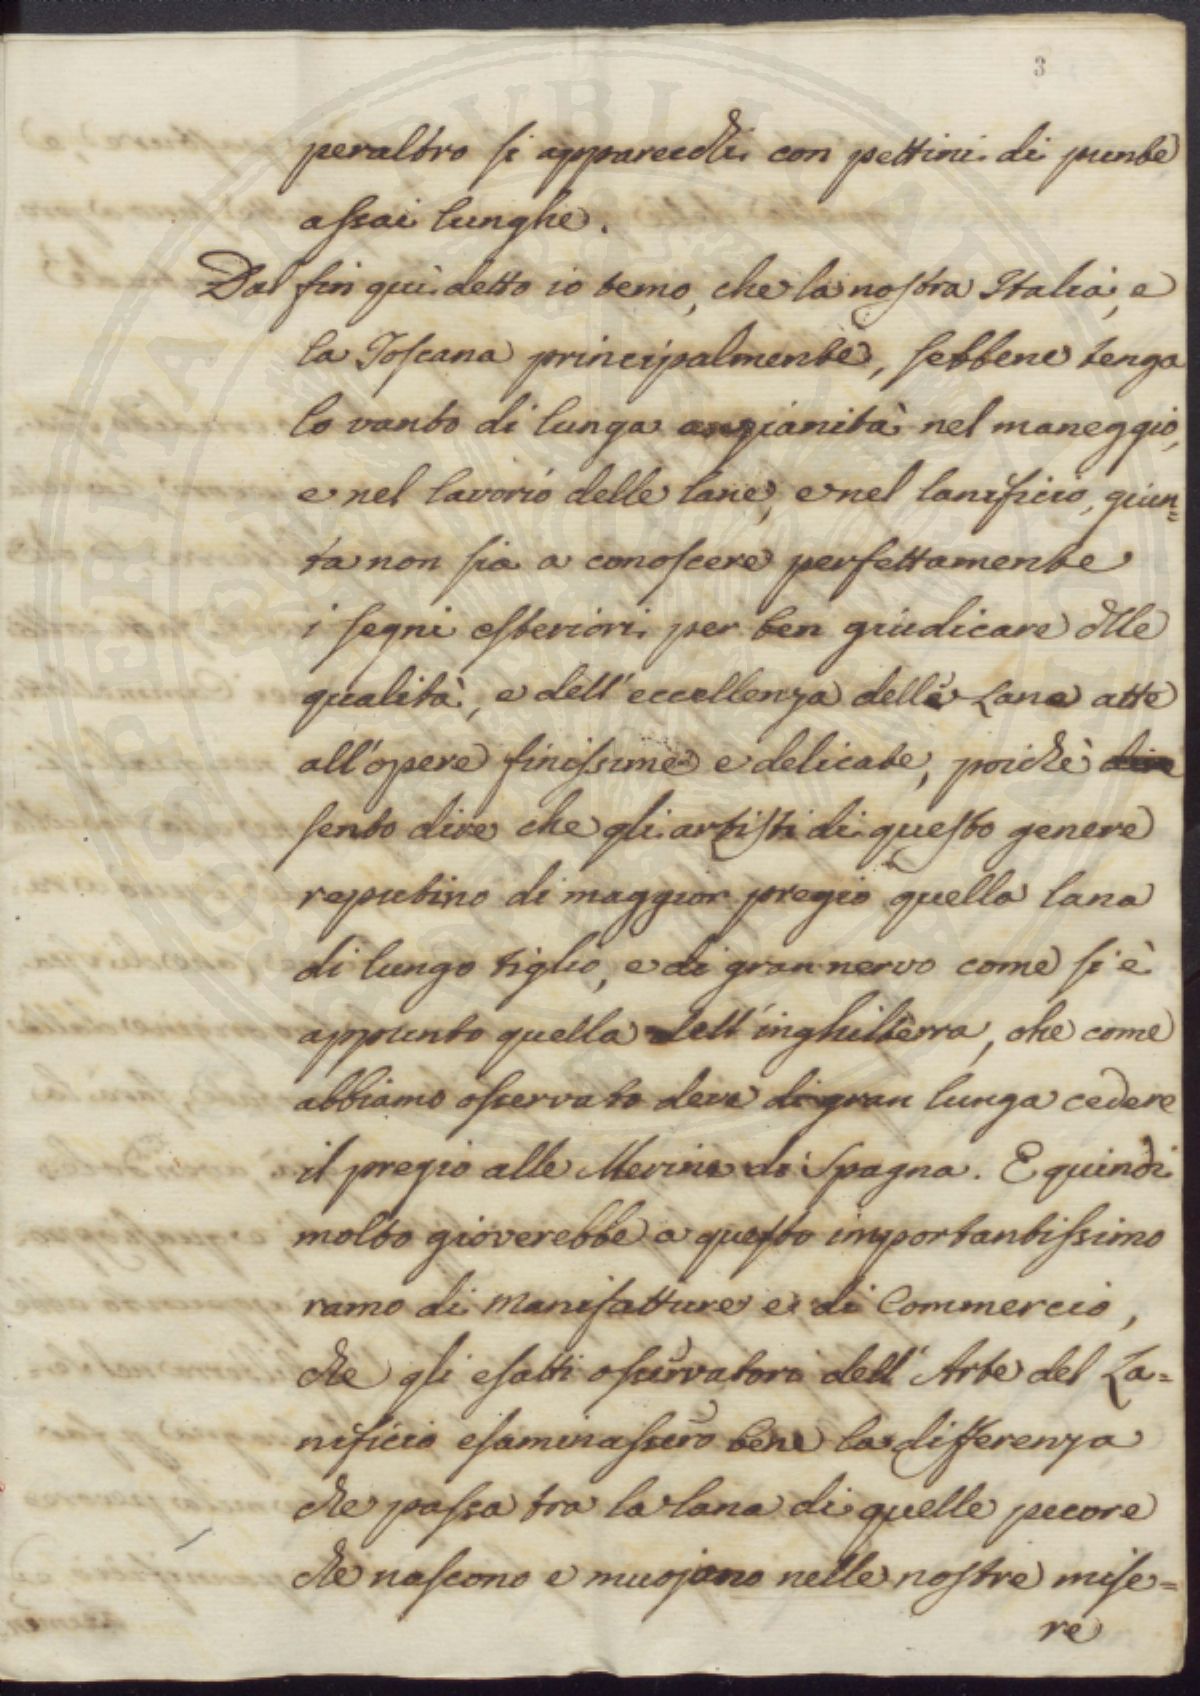 3
peraltro si apparecchi con pettini di punte
assai lunghe.
Dal fin quì detto io temo, che la nostra Italia, e
la Toscana principalmente, sebbene tenga
lo vanto di lunga anzianità nel maneggio,
e nel lavorio delle lane, e nel lanificio, giun=
ta non sia a conoscere perfettamente
i segni esteriori per ben giudicare dlle
qualità, e dell'eccellenza delle Lane atte
all'opere finissime e delicate, poichè
sento dire che gli artisti di questo genere
reputino di maggior pregio quella lana
di lungo tiglio, e di gran nervo come si è
appunto quella dell'inghilterra, che come
abbiamo osservato deve di gran lunga cedere
il pregio alle Merine di Spagna. E quindi
molto gioverebbe a questo importantissimo
ramo di Manifatture e di Commercio,
che gli esatti osservatori dell'Arte del La=
nificio esaminassero bene la differenza
che passa tra la lana di quelle pecore
che nascono e muojono nelle nostre mise=
re
SPERITAS PVBLICA